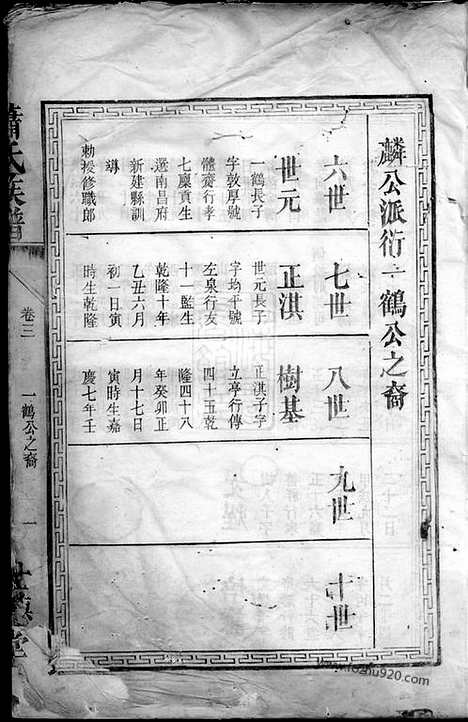 麟公派衍一鶴公之裔
六世
七世
八世
九世
十世
世元
一鶴長子
字敦厚號
體齋行孝
七廩貢生
選南昌府
新建縣訓
導
勅授修職郎
正淇
世元長子
字均平號
左泉行友
十一監生
乾隆十年
乙丑六月
初一日寅
時生乾隆
樹基
正淇子字
立亭行傳
四十五乾
隆四十八
年癸卯正
月十七日
寅時生嘉
慶七年壬
蕭氏族譜
卷三
一鶴公之裔
一
堂
www.lcezhu920.com